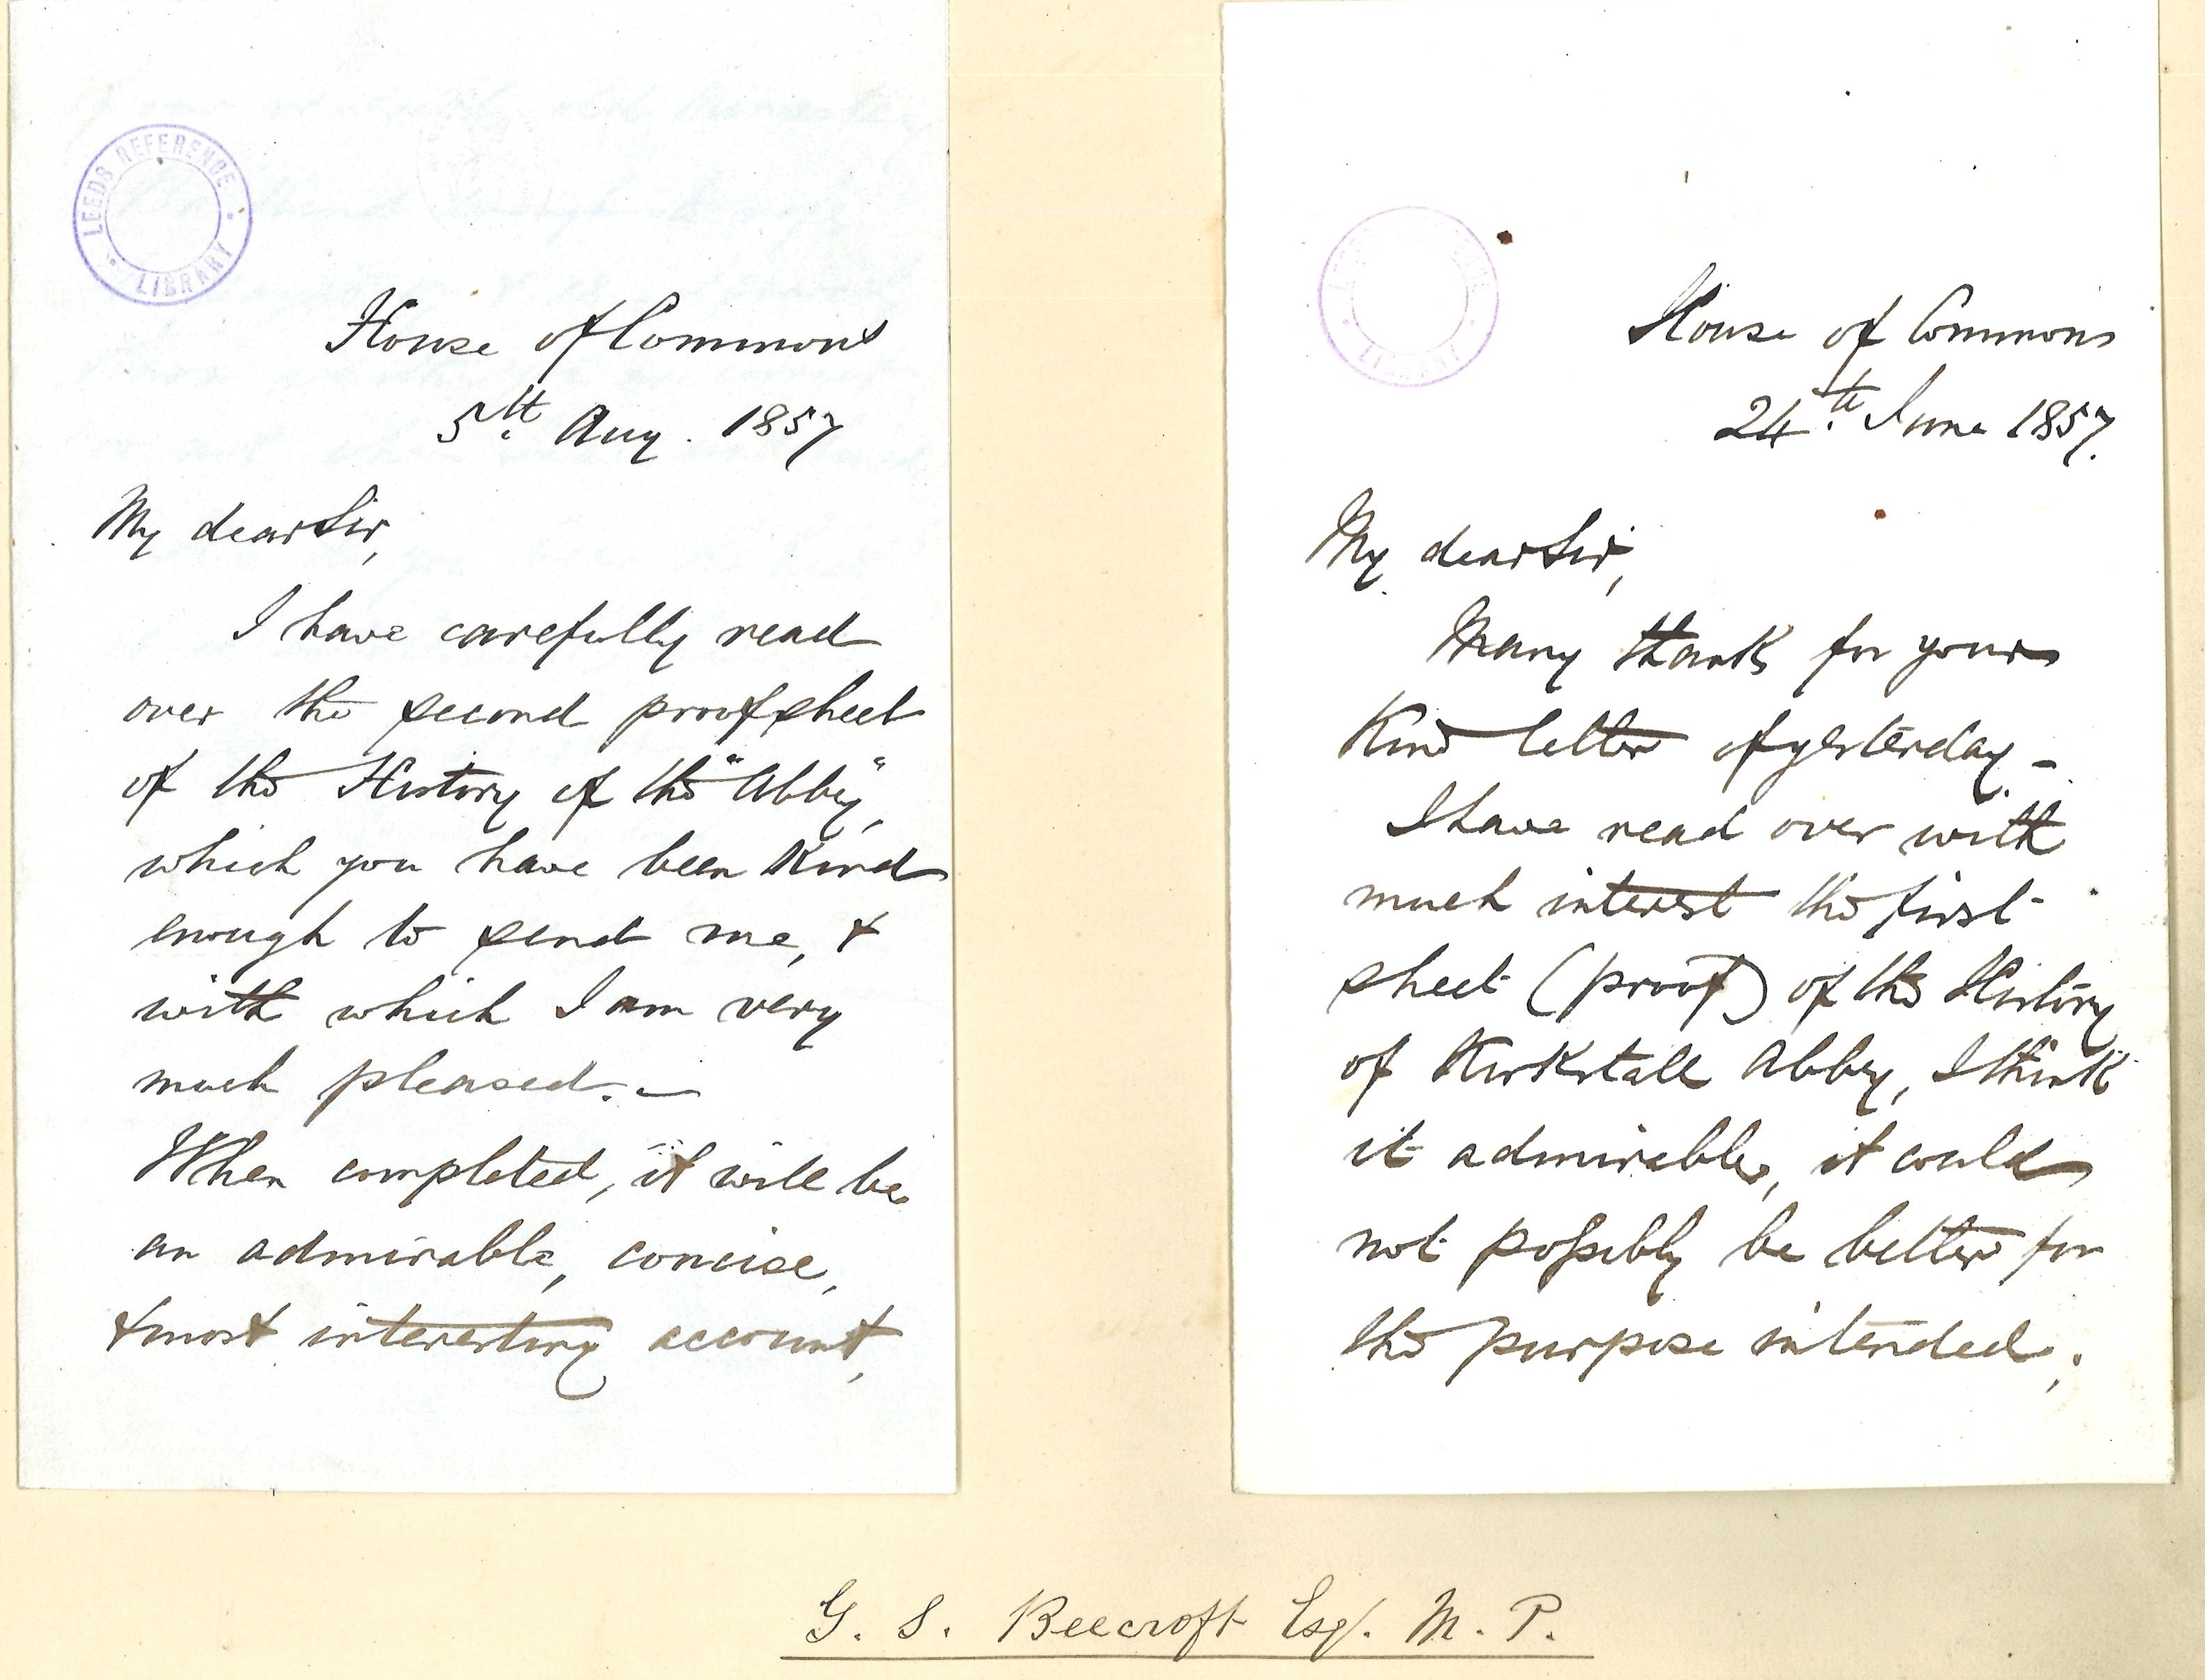 LEEDS REFERENCE LIBRARY
House of Commons
5th Aug. 1857
My dear Sir,
I have carefully read
over the second proof sheet
of the History of the "Abbey",
which you have been kind
enough to send me, &
with which I am very
much pleased. —
When completed, it will be
an admirable, concise,
& most interesting account,
LEEDS REFERENCE LIBRARY
House of Commons
24th June 1857.
My dear Sir,
Many thanks for your
kind letter of yesterday. —
I have read over with
much interest the first
sheet (proof) of the History
of Kirkstall Abbey, I think
it admirable, it could
not possibly be better for
the purpose intended;
G. S. Beecroft Esq. M. P.